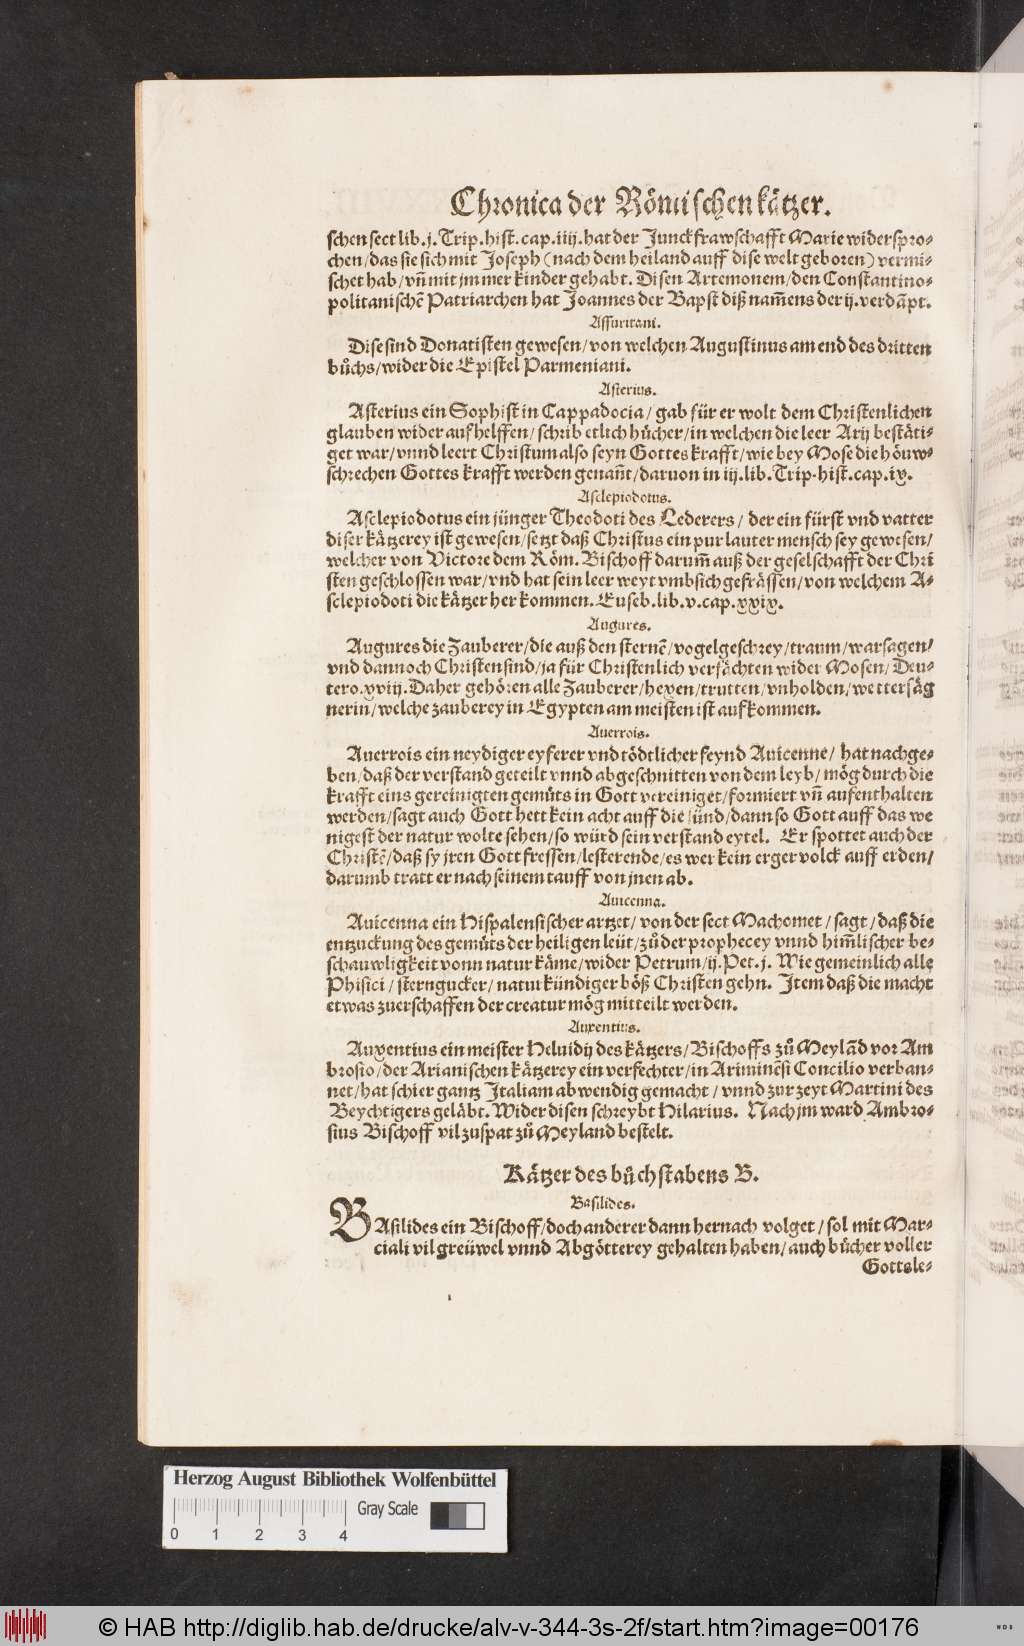 Chronica der Römischen kätzer.
schen sect lib. j. Trip. hist. cap. iiij. hat der Junckfrawschafft Marie widerspro⸗
chen/ das sie sich mit Joseph (nach dem heiland auff dise welt geboren) vermi⸗
schet hab/ vñ mit jm mer kinder gehabt. Disen Artemonem/ den Constantino⸗
politanischē Patriarchen hat Joannes der Bapst diß nam̃ens der ij. verdāpt.
Assuritani.
Dise sind Donatisten gewesen/ von welchen Augustinus am end des dritten
bůchs/ wider die Epistel Parmeniani.
Asterius.
Asterius ein Sophist in Cappadocia/ gab für er wolt dem Christenlichen
glauben wider auf helffen/ schrib etlich bůcher/ in welchen die leer Arij bestäti⸗
get war/ vnnd leert Christum also seyn Gottes krafft/ wie bey Mose die höuw⸗
schrechen Gottes krafft werden genañt/ daruon in iij. lib. Trip. hist. cap. ix.
Asclepiodotus.
Asclepiodotus ein jünger Theodoti des Lederers/ der ein fürst vnd vatter
diser kätzerey ist gewesen/ setzt daß Christus ein pur lauter mensch sey gewesen/
welcher von Victore dem Röm. Bischoff darum̃ auß der geselschafft der Chri
sten geschlossen war/ vnd hat sein leer weyt vmb sich gefrässen/ von welchem A⸗
sclepiodoti die kätzer her kommen. Euseb. lib. v. cap. xxix.
Augures.
Augures die Zauberer/ die auß den sternē/ vogelgeschrey/ traum/ warsagen/
vnd dannoch Christen sind/ ja für Christenlich verfächten wider Mosen/ Deu⸗
tero. xviij. Daher gehören alle Zauberer/ hexen/ trutten/ vnholden/ wettersäg
nerin/ welche zauberey in Egypten am meisten ist aufkommen.
Auerrois.
Auerrois ein neydiger eyferer vnd tödtlicher feynd Auicenne/ hat nachge⸗
ben/ daß der verstand geteilt vnnd abgeschnitten von dem leyb/ mög durch die
krafft eins gereinigten gemůts in Gott vereiniget/ formiert vñ aufenthalten
werden/ sagt auch Gott hett kein acht auff die sünd/ dann so Gott auff das we
nigest der natur wolte sehen/ so würd sein verstand eytel. Er spottet auch der
Christē/ daß sy jren Gott fressen/ lesterende/ es wer kein erger volck auff erden/
darumb tratt er nach seinem tauff von jnen ab.
Auicenna.
Auicenna ein Hispalensischer artzet/ von der sect Machomet/ sagt/ daß die
entzuckung des gemůts der heiligen leüt/ zů der prophecey vnnd him̃lischer be⸗
schauwligkeit vonn natur käme/ wider Petrum/ ij. Pet. j. Wie gemeinlich alle
Phisici/ sterngucker/ naturkündiger böß Christen gehn. Item daß die macht
etwas zuerschaffen der creatur mög mitteilt werden.
Auxentius.
Auxentius ein meister Heluidij des kätzers/ Bischoffs zů Meylād vor Am
brosio/ der Arianischen kätzerey ein verfechter/ in Ariminēsi Concilio verban⸗
net/ hat schier gantz Italiam abwendig gemacht/ vnnd zur zeyt Martini des
Beychtigers geläbt. Wider disen schreybt Hilarius. Nach jm ward Ambro⸗
sius Bischoff vil zuspat zů Meyland bestelt.
Kätzer des bůchstabens B.
Basilides.
BAsilides ein Bischoff/ doch anderer dann hernach volget/ sol mit Mar⸗
ciali vil greüwel vnnd Abgötterey gehalten haben/ auch bůcher voller
Gottsle⸗
Herzog August Bibliothek Wolfenbüttel
Gray Scale
0 1 2 3 4
© HAB http://diglib.hab.de/drucke/alv-v-344-3s-2f/start.htm?image=00176